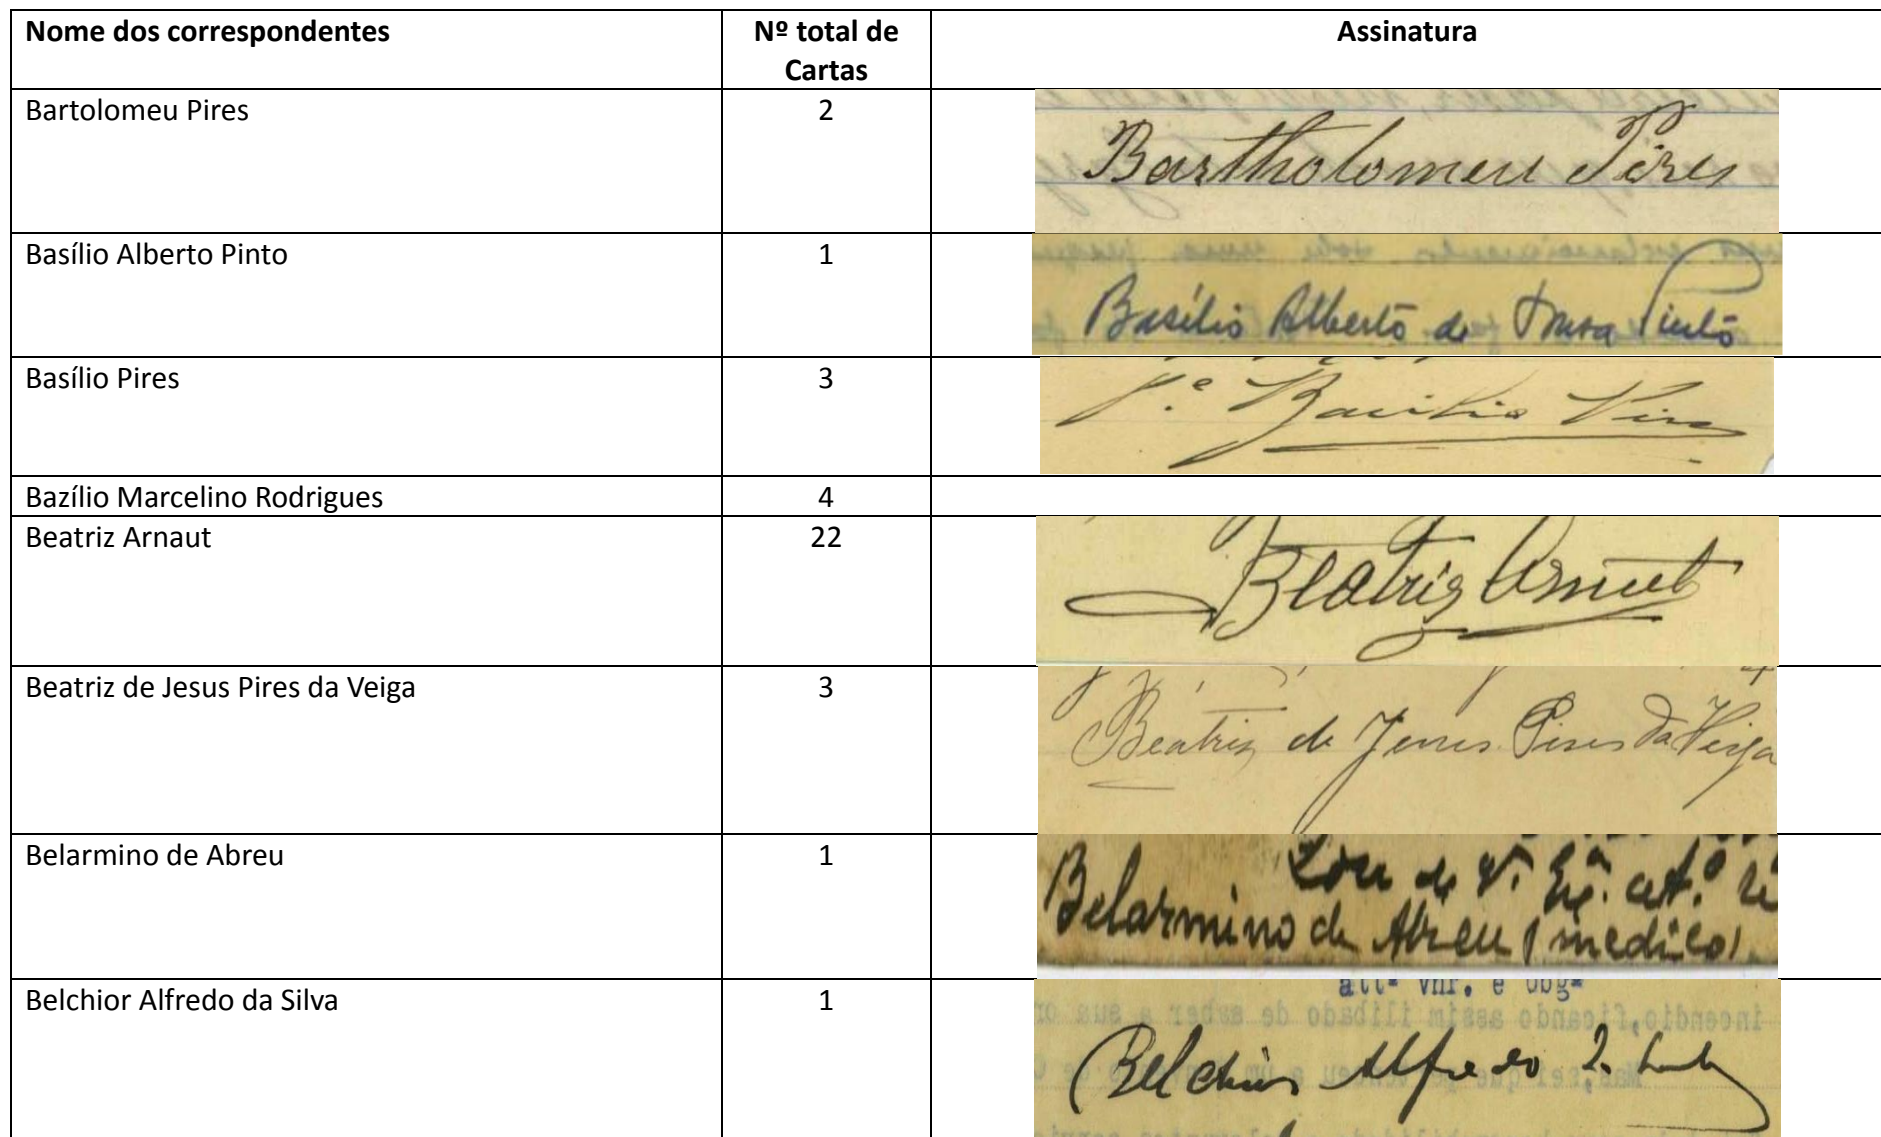 Nome dos correspondentes
Nº total de
Cartas
Assinatura
Bartolomeu Pires
2
Bartholomeu Pires
Basílio Alberto Pinto
1
Basílio Alberto de Sousa Pinto
Basílio Pires
3
P.e Basilio Pires
Bazílio Marcelino Rodrigues
4
Beatriz Arnaut
22
Beatriz Arnaut
Beatriz de Jesus Pires da Veiga
3
Beatriz de Jesus Pires da Veiga
Belarmino de Abreu
1
de V. Exª.
Belarmino de Abreu (medico)
Belchior Alfredo da Silva
1
attª vnr. e obgª
Belchior Alfredo